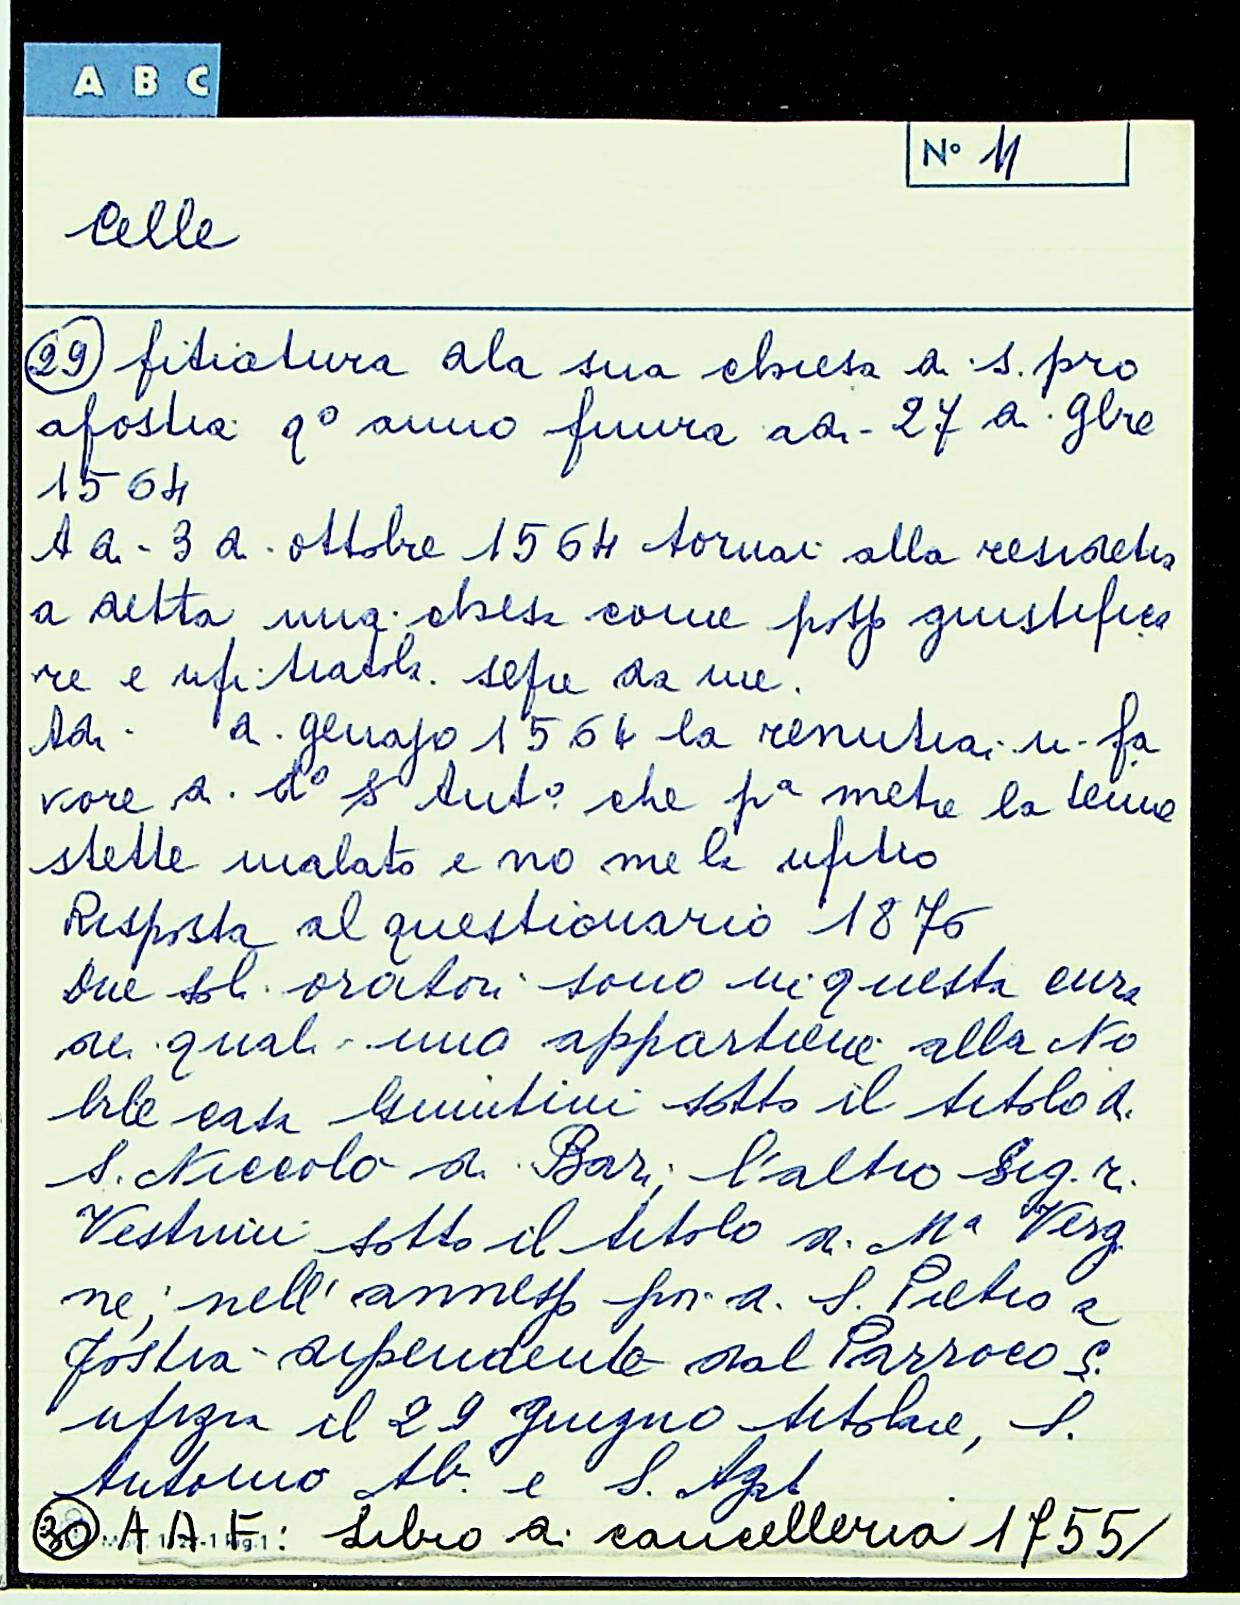 A B C
N° 11
Celle
29 fitiatura ala sua chiesa di s. pro
afostia q° anno finira adi - 27 di 9bre
1564
A di - 3 di ottobre 1564 tornai alla
a detta mia chiesa come posso giustifica
re e ufitiatola sefre da me.
Adi di genajo 1564 la renutiai in fa
vore di d° s Ant° che p^a metre la tenne
stette malato e no me la ufitio
Risposta al questionario 1876
Due soli oratori sono in questa cura
dei quali uno appartiene alla No
bile casa sotto il titolo di
S. Niccolo di Bari; l'altro Sig.r.
sotto il titolo di M^a Verg
ne; nell' annesso poi di S. Pietro a
fostia dipendente dal Parroco s.
ufizia il 29 giugno titolare, S.
Antonio Ab. e S. Agat
30 A A F: Libro di cancelleria 1755/